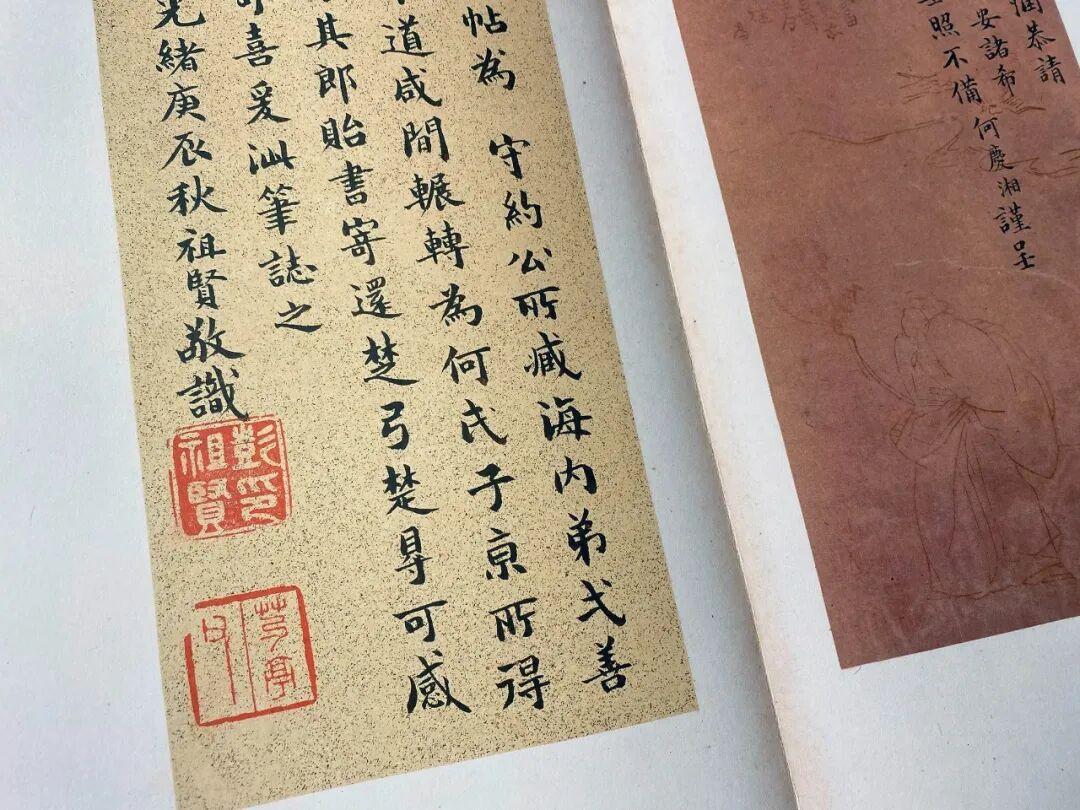 潤恭請
安諸希
照不備 何慶湘謹呈
帖為 守約公所藏海內弟弌善
道咸間輾轉為何氏子京所得
其郎貽書寄還楚弓楚㝵可感
可喜爰泚筆誌之
光緒庚辰秋祖賢敬識
彭祖賢印
芍亭